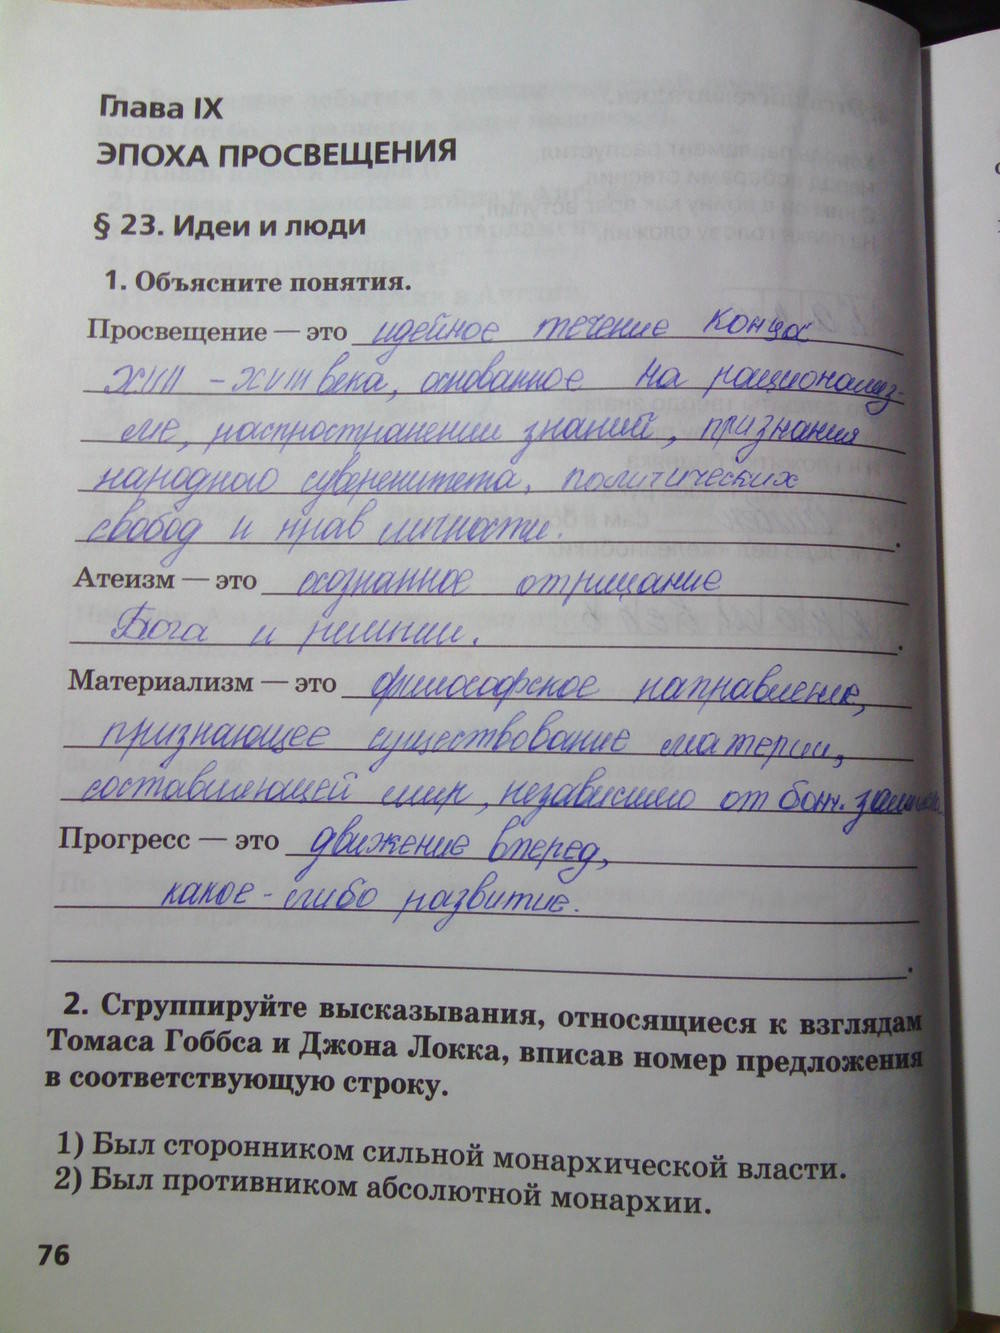 Глава IX
ЭПОХА ПРОСВЕЩЕНИЯ
§ 23. Идеи и люди
1. Объясните понятия.
Просвещение — это идейное течение конца
XVII - XVIII века, основанное на рационализ-
ме, распространении знаний, признания
народного суверенитета, политических
свобод и прав личности.
Атеизм — это осознанное отрицание
Бога и религии.
Материализм — это философское направление,
признающее существование материи,
составляющей мир, независимо от бож.
Прогресс — это движение вперед,
какое-либо развитие.
2. Сгруппируйте высказывания, относящиеся к взглядам
Томаса Гоббса и Джона Локка, вписав номер предложения
в соответствующую строку.
1) Был сторонником сильной монархической власти.
2) Был противником абсолютной монархии.
76